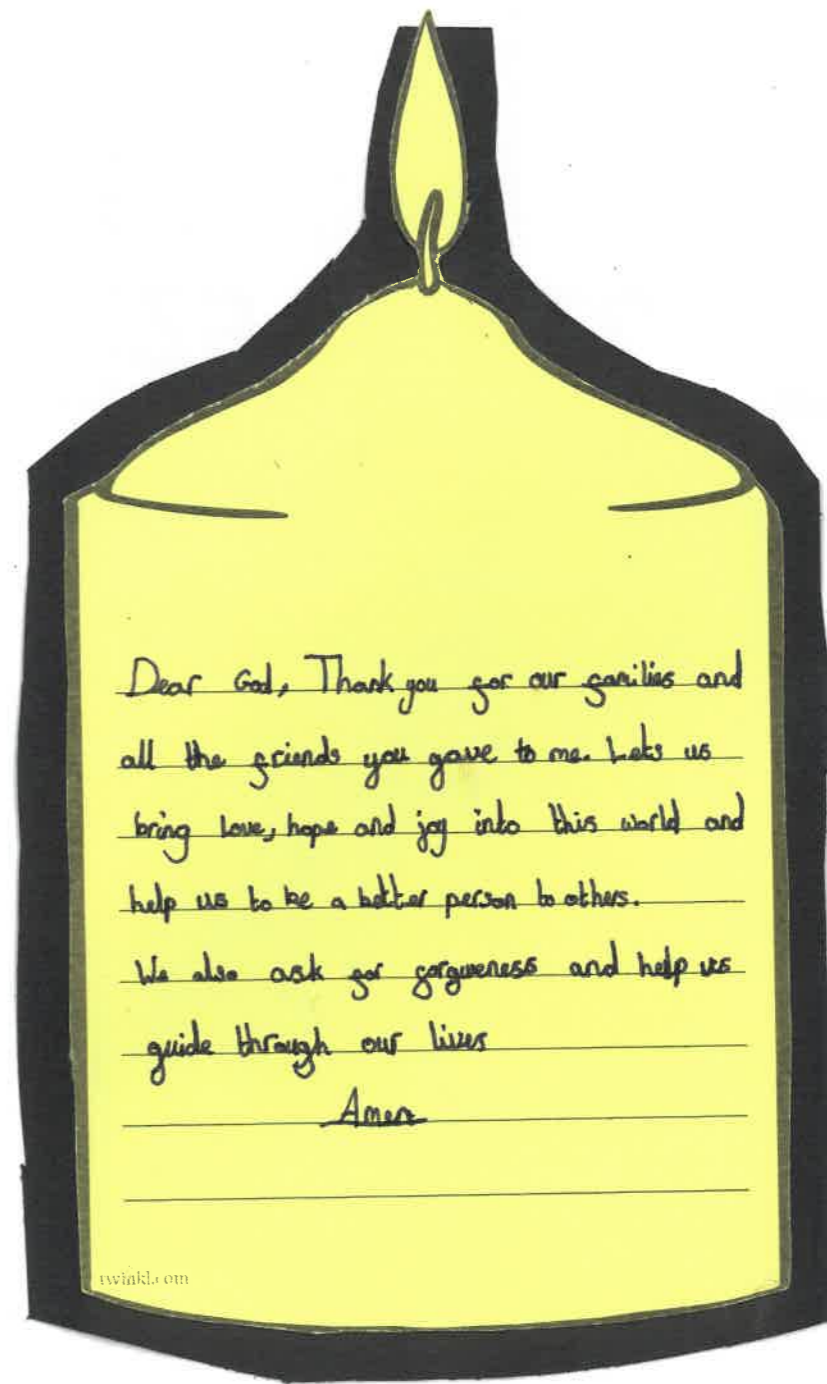 Dear God, Thank you for our families and
all the friends you gave to me. Lets us
bring love, hope and joy into this world and
help us to be a better person to others.
We also ask for forgiveness and help us
guide through our lives
Amen
twinkl.com